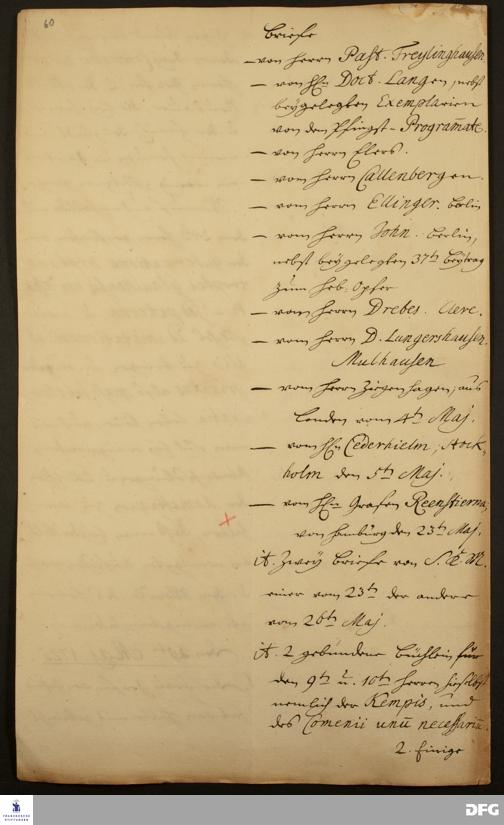 60
Briefe
– von Herrn Past. Freylinghausen
– von Hn Doct. Langen, nebst
beygelegten Exemplarien
von dem Pfingst-Programate.
– von Herrn Elers.
– von Herrn Callenbergen.
– von Herrn Ellinger. Berlin
– von Herrn John. Berlin,
nebst beygelegten 37th Beytrag
zum Heb: Opfer
– von Herrn Drebes.
– von Herrn D. Lungershausen.
Mulhausen
– von Herrn Ziegenhagen, aus
Londen vom 4th Maj.
– von Hn Cederhielm, Stock-
holm den 5th Maj.
– von Hn Grafen Reenstierna,
von Hamburg den 23th Maj.
it. Zwey Briefe von
einer vom 23th der andere
vom 26th Maj.
it. 2 gebundene Büchlein für
den 9th u. 10th Herren hieselbst
nemlich der Kempis, und
des Comenii unū necessariū.
2. Einige
FRANCKESCHE
STIFTUNGEN
DFG